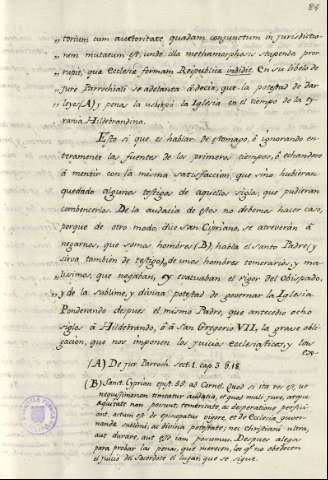 84
,, torium cum auctoritate quadam conjunctum in jurisdictio-
,, nem mutatum est, unde illa methamorphosis stupenda pro-
,, rupit, que Ecclesie formam Respublica indidit. En su libelo de
,, jure Parrochiali se adelanta à decir, que la potestad de dar
,, leyes (A), y penas la usurpó la Iglesia en el tiempo de la ty-
,, rania Hildebrandina.
Esto si que es hablar de estomago, ó ignorando en-
teramente las fuentes de los primeros tiempos, ó echandose
á mentir con la misma satisfaccion, que si no hubieran
quedado algunos testigos de aquellos siglos, que pudieran
combencerlos. De la audacia de estos no debemos hacer caso,
porque de otro modo, dice San Cipriano, se atreverán á
negarnos, que somos hombres (B), habla el Santo Padre, y
sirva tambien de testigo, de unos hombres temerarios, y ma-
lisimos, que negaban, y coartaban el rigor del Obispado,
y de la sublime, y divina potestad de governar la Iglesia.
Ponderando despues el mismo Padre, que antecedio ocho
siglos á Hildebrando, ó á San Gregorio VII, la grave obli-
gacion, que nos imponen los juicios eclesiasticos, y las
(A) De jur Parroch. sect. 1. cap. 3. § 18.
(B) Sanct. Cyprian epist. 55 ad Cornel. Quod si ita res est, ut
nequissimorum timeatur audacia, et quod mali jure, atque
equitate non possunt, temeritate, ac desperatione perfici-
ant, actum est de episcopatus vigore, et de Ecclesie guver-
nande sublimi, ac divina potestate; nec christiani ultra,
aut durare, aut esse jam possumus. Despues alega
para probar las penas, que merecen, los que no obedecen
el juicio del Sacerdote el lugar, que se sigue.